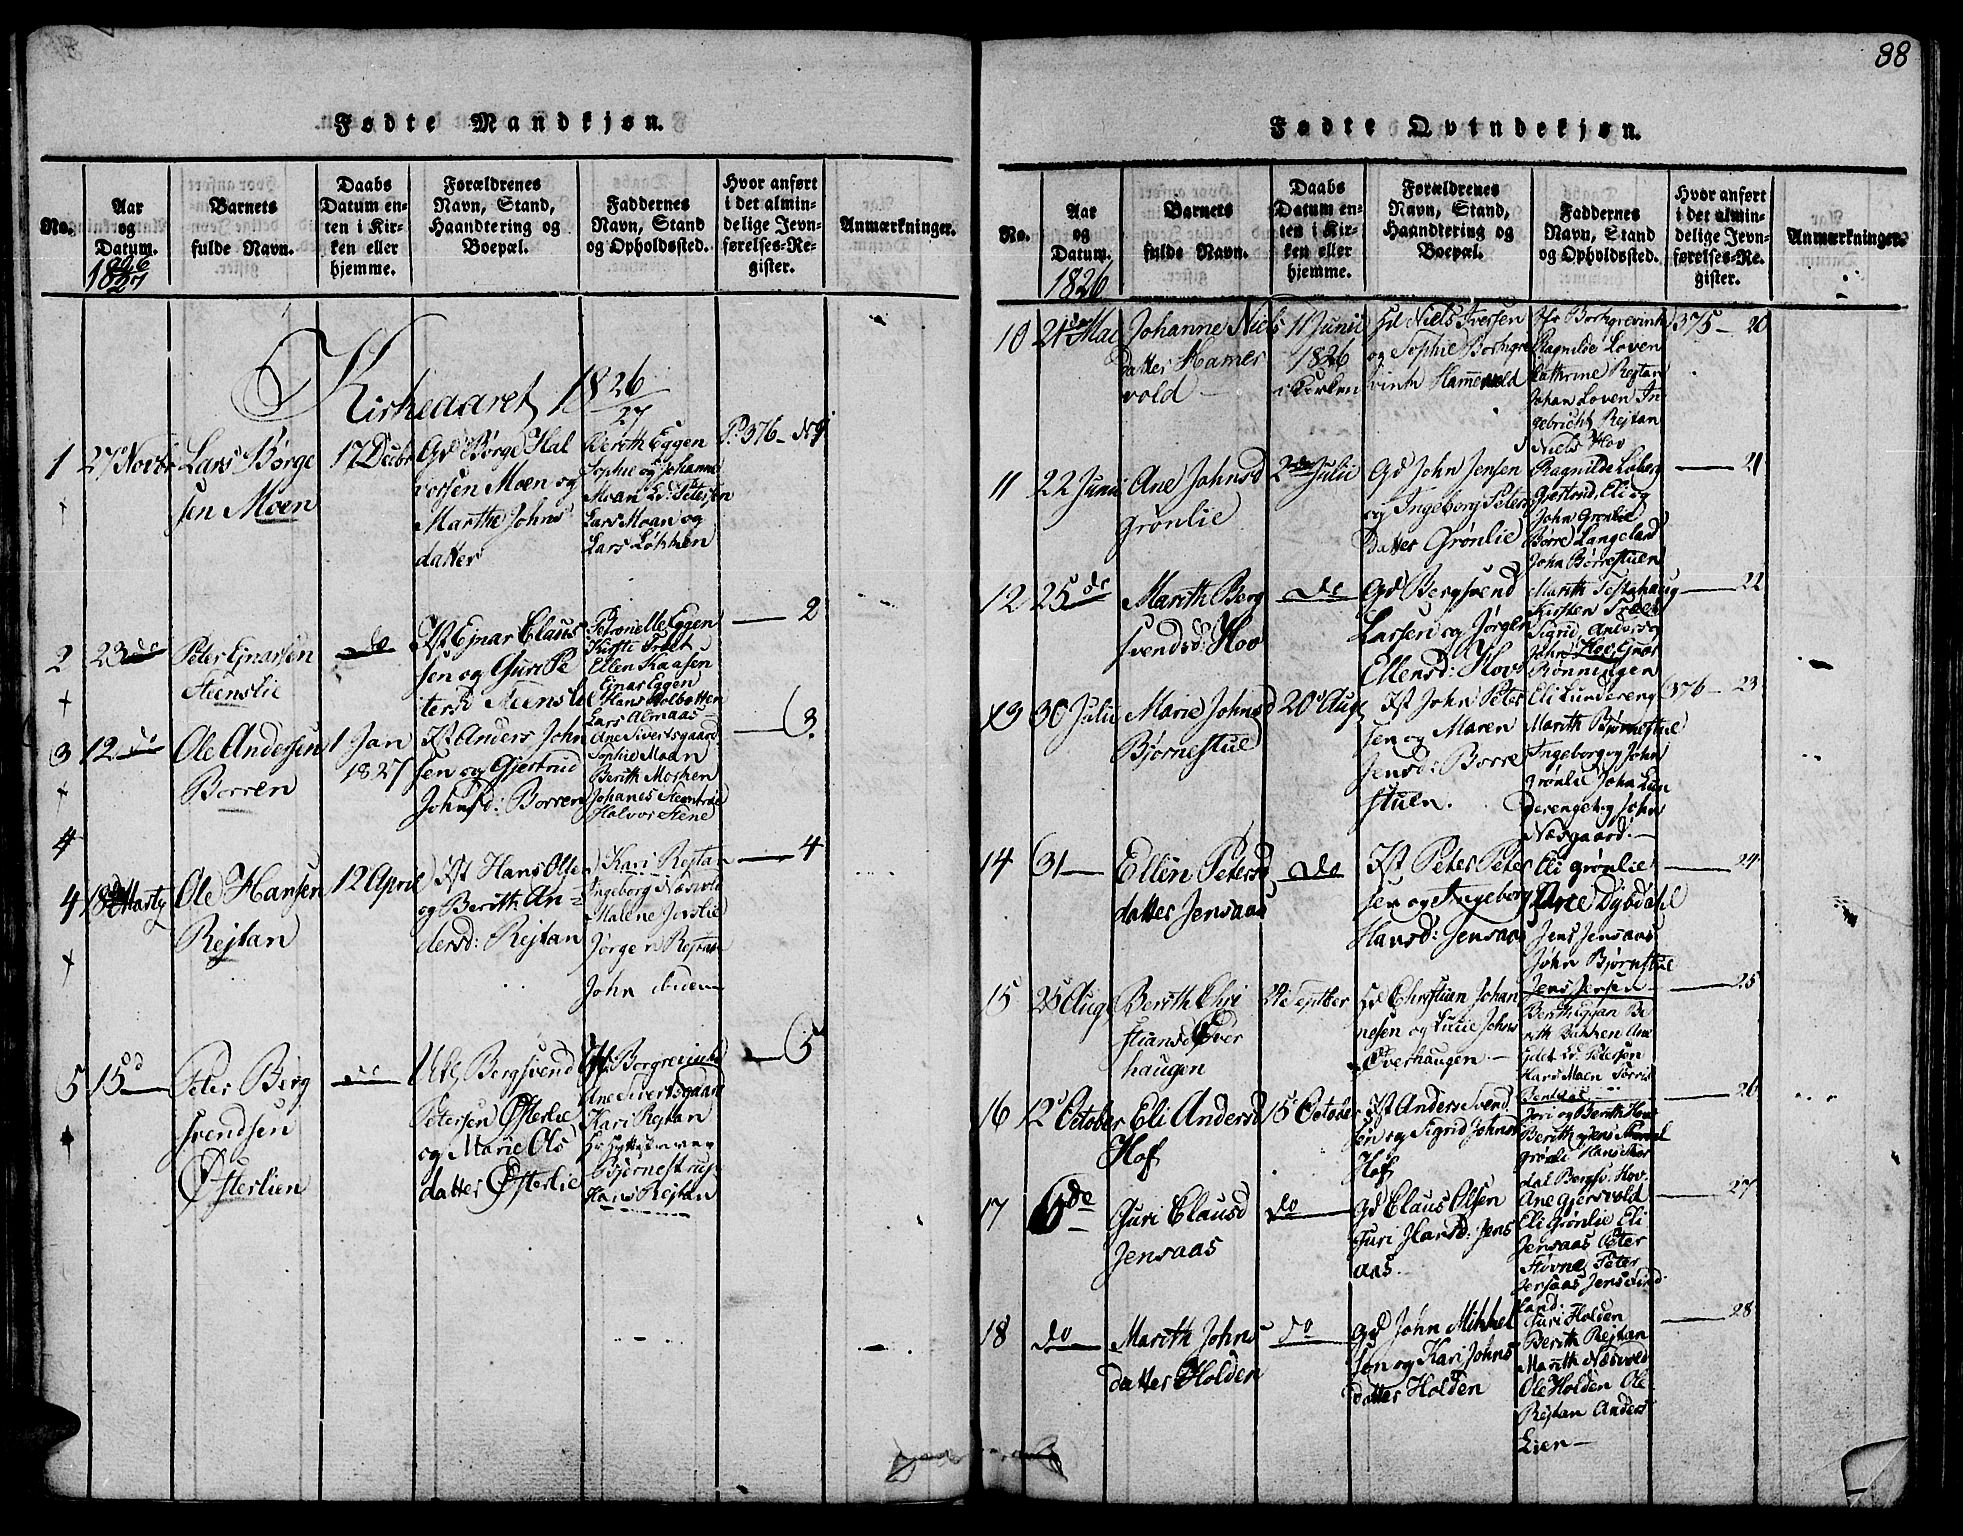 88
Fødte Mandkjøn.
No.
Aar
og
Datum.
1826
27
Barnets
fulde Navn.
Daabs
Datum en-
ten i Kir-
ken eller
hjemme.
Forældrenes
Navn, Stand,
Haandtering og
Boepæl.
Faddernes
Navn, Stand
og Opholdssted.
Hvor anført
i det almin-
delige Jevn-
førelses-Re-
gister.
Anmærkninger.
Kirkeaaret 1826
27
1
27 Novbr
Lars Børge
sen Moen
17 Decbr
Gd Børge Hal
vorsen Moen og
Marthe Johns
datter
Berith Eggen
Sophie og Johanne
Moan Ld: Petersen
Lars Moan og
Lars Løkken
P: 376 - No 1
2
23 do
Peter Ejnarsen
Steenslie
do
Ist Ejnar Claus
sen og Guri Pe
tersd Steenslie
Petronelle Eggen
Kirste Træet
Ellen Kaasen
Ejnar Eggen
Hans Holbotten
Lars Almaas
2
3
12 do
Ole Andersen
Borren
1 Jan
1827
Ist Anders John
sen og Gjertrud
Johnsd: Borren
Ane Sivertsgaard
Sophie Moan
Berith Mosken
Johanes Stentrøe
Halvor Stene
3.
4
4
18 Marty
Ole Hansen
Rejtan
12 April
Ist Hans Olsen
og Berith An-
dersd: Rejtan
Kari Rejtan
Ingeborg Næsvold
Malene Jenslie
Jørgen Rejtan
John
4
5
15
Peter Berg
svendsen
Østerlien
do
Bergsvend
Petersen Østerlie
og Marie Ols
datter Østerlie
Borgrevink
Ane Sivertsgaard
Kari Rejtan
Bjørnestrup
Hans Rejtan
5
Fødte Qvindekjøn.
No.
Aar
og
Datum.
1826
Barnets
fulde Navn.
Daabs
Datum en-
ten i Kir-
ken eller
hjemme.
Forældrenes
Navn, Stand,
Haandtering og
Boepæl.
Faddernes
Navn, Stand
og Opholdssted.
Hvor anført
i det almin-
delige Jevn-
førelses-Re-
gister.
Anmærkninger.
10
21 Mai
Johanne Niels
datter Hamer
vold
11 Junii
1826
i Kirken
Niels Iversen
og Sophie Borchgre
vink Hammervold
Borchgrevink
Ragnilde Loven
Cathrine Rejtan
Johan Loven In
gebricht Rejtan
Niels Hov
375 - 20
11
22 Junii
Ane Johnsd
Grønlie
2 Julii
Gd John Jensen
og Ingeborg Peters
datter Grønlie
Ragnilde Løberg
Gjertrud, Eli og
John Grønlie
Børre Langeland
John Børrestuen
21
12
25 do
Marith Berg
svendsd: Hov
do
Gd Bergsvend
Larsen og Jørgen
Ellensd: Hovs
Marith Testahaug
Kirsten Træen
Sigrid, Anders og
John Hov,
Rønningen
22
13
30 Julii
Marie Johnsd
Bjørnestue
20 Aug
Ist John Peter
sen og Maren
Jensd: Børre
stuen.
Eli Lundereng
Marith Bjørnestue
Ingeborg og John
Grønlie John Lun
derenget og John
Næsgaard.
376 - 23
14
31
Ellen Peters
datter Jensaas
do
Ist Peter Peter
sen og Ingeborg
Hansd: Jensaas
Eli Grønlie
Ane Dybdahl
Jens Jensaas
John Bjørnstue
Jens Jensen
24
15
25 Aug
Berith Chri
stiansd Over
haugen
24 Septber
Gd Christian Johan
nesen og Lucie Johns
Overhaugen
Berith Gjan Be
rith Bakken Ane
Eidet Ld. Petersen
Hans Moen Torris
25
16
12 October
Eli Andersd
Hof
15 October
Ist Anders Svend
sen og Sigrid Johnsd
Hof
Jori og Berith Hov
Berith og Jens
Grønli Hans
dal Bergsv. Hov.
26
17
do
Guri Clausd
Jensaas
do
Gd Claus Olsen
Guri Hansd: Jens
aas.
Ane Gjersvold
Eli Grønlie Eli
Jensaas Peter
Stovne Peter
Jensaas Jens Lind
land:
27
18
do
Marith Johns
datter Holden
do
Gd John Mikkel
sen og Kari Johns
datter Holden
Guri Holden
Berith Rejtan
Marith Næsvold
Ole Holden Ole
Rejtan Anders
Lien
28